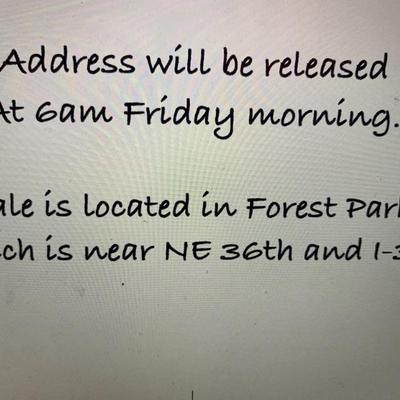 Address will be released
At 6am Friday morning.
ale is located in Forest Par
ch is near NE 36th and I-3